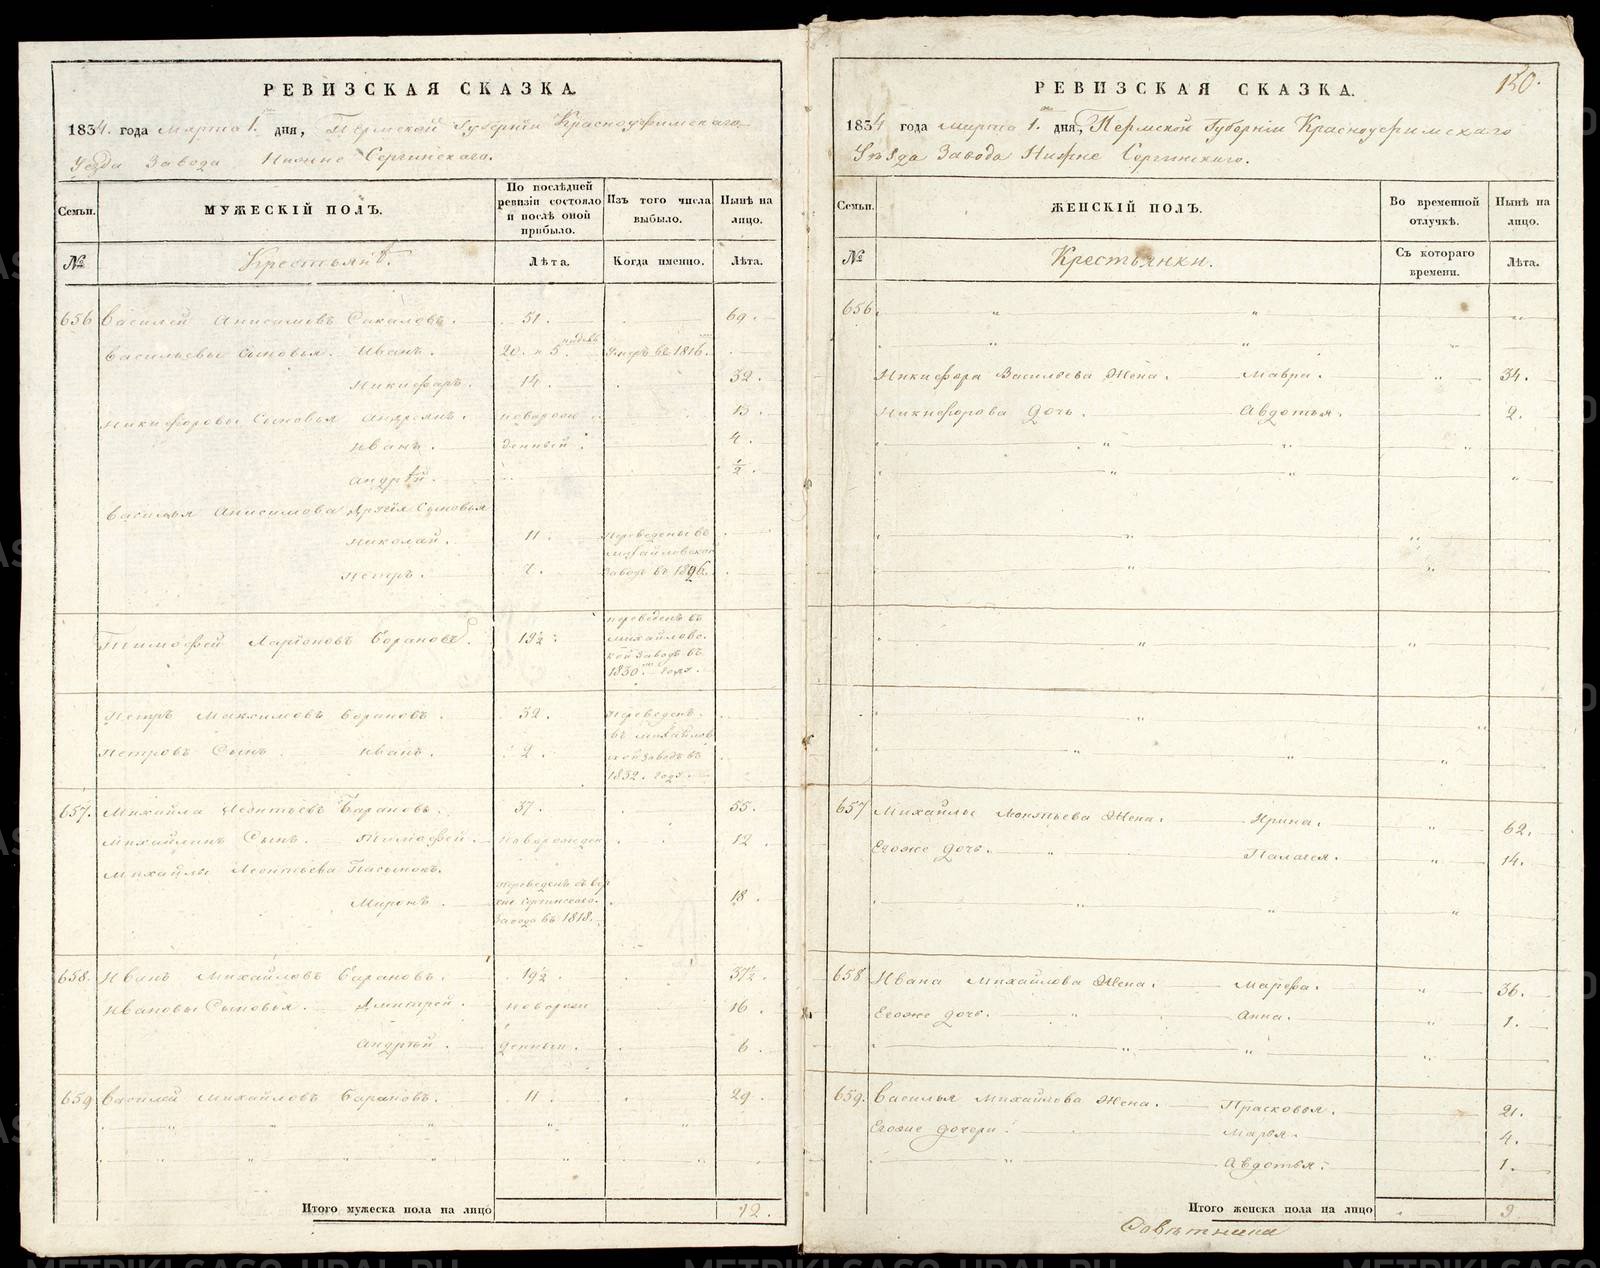 РЕВИЗСКАЯ СКАЗКА.
1834. года Марта 1. дня, Пермской Губерніи Красноуфимскаго
Уезда Завода Нижне Сергинскаго.
Семьи.
МУЖЕСКІЙ ПОЛЪ.
По послѣдней ревизіи состояло и послѣ оной прибыло.
Изъ того числа выбыло.
Нынѣ на лицо.
№
Крестьянѣ.
Лѣта.
Когда именно.
Лѣта.
656 Василей Анисимовъ Сокаловъ. 51. 69.
Васильевы Сыновья. Иванъ. 20. и 5. недѣль Умеръ въ 1816.
Никифаръ. 14. 32.
Никифоровы Сыновья новорож 13.
Иванъ. денный. 4.
Андрѣй. 1/2.
Василья Анисимова другія Сыновья
Николай. 11. Переведены въ
Михайловской
Петръ. 7. Заводъ въ 1826.
Тимофей Ларіоновъ Барановъ. 19½. переведенъ въ
Михайловс.
кой Заводъ въ
1830. года.
Петръ Максимовъ Барановъ. 32. Переведенъ.
въ Михайлов
Петровъ Сынъ Иванъ. 2. ской Заводъ въ
1832. годъ.
657. Михайла Леонтьевъ Барановъ. 37. 55.
Михайлинъ Сынъ. Тимофей. Новорожден 12
Михайлы Леонтьева Пасынокъ.
Миронъ. переведенъ съ вер
хне Сергинскаго
Завода въ 1818. 18.
658. Иванъ Михайловъ Барановъ. 19½. 37½.
Ивановы Сыновья. Дмитрей. новорож 16.
Андрѣй. денныи. 6.
659 Василей Михайловъ Барановъ. 11. 29.
Итого мужеска пола на лицо 12.
150.
РЕВИЗСКАЯ СКАЗКА.
1834 года Марта 1. дня, Пермской Губерніи Красноуфимскаго
Уѣзда Завода Нижне Сергинскаго.
Семьи.
ЖЕНСКІЙ ПОЛЪ.
Во временной отлучкѣ.
Нынѣ на лицо.
№
Крестьянки.
Съ котораго времени.
Лѣта.
656.
Никифора Васильева Жена. Мавра. 34.
Никифорова дочь. Авдотья. 2.
657 Михайлы Леонтьева Жена. Ирина. 62.
Егоже дочь. Палагея. 14.
658 Ивана Михайлова Жена. Марфа. 36.
Егоже дочь. Анна. 1.
659. Василья Михайлова Жена. Прасковья. 21.
Егоже дочери. Марья. 4.
Авдотья. 1.
Итого женска пола на лицо 9.
Совѣтника